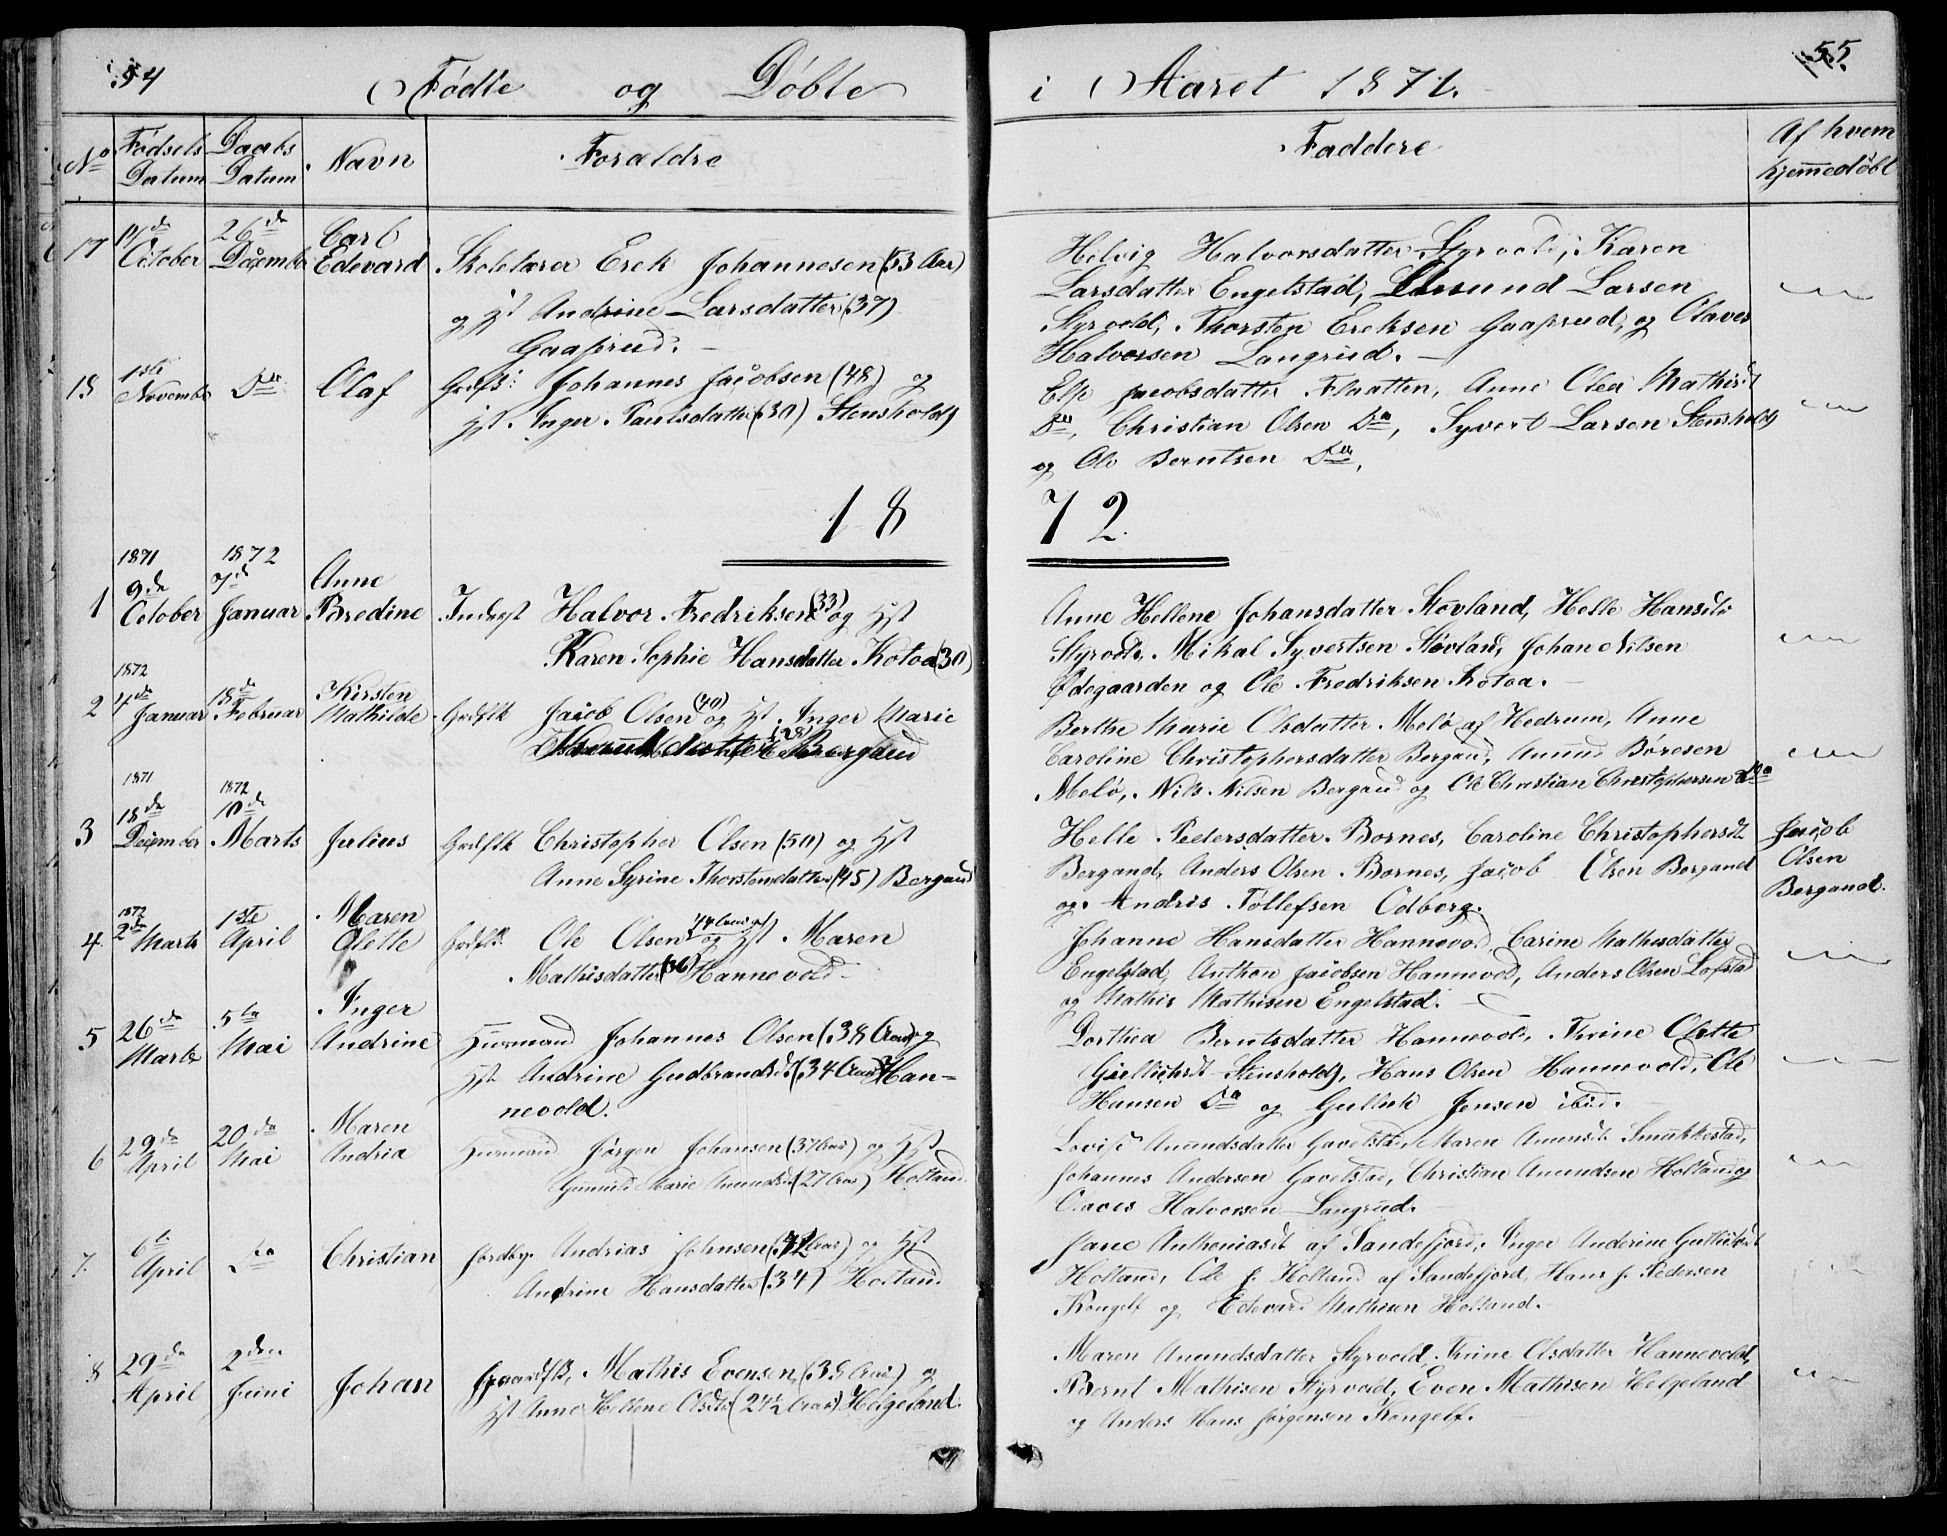 54
Fødte og Døbte
No
Fødsels Datum
Daabs Datum
Navn
Forældre
17
14de October
26de December
Carl Edevard
Skolelærer Erek Johannesen (53 Aar)
og Hst Andrine Larsdatter (37)
Gaaserud.
18
1ste November
Do
Olaf
Grdfs: Johannes Jacobsen (48) og
Hst. Inger Paulsdatter (30) Stensholdt
18
1871
9de October
1872
7de Januar
1
Anne Bredine
Inderst Halvor Fredriksen (33) og Hst
Karen Sophie Hansdatter Kotoa (30)
1872
2
4de Januar
18de Februar
Kirsten Mathilde
Grdfsk Jacob Olsen (40) og Hst. Inger Marie
(28) Bergand
1871
18de December
1872
10de Marts
3
Julius
Grdfsk Christopher Olsen (50) og Hst
Anne Syrine Thorstensdatter (45) Bergand
1872
4.
2de Marts
1ste April
Maren Olette
Grdfsk. Ole Olsen 44 Aar og Hst Maren
Mathisdatter (36) Hannevold.
5
26de Marts
5te Mai
Inger Andrine
Huusmand Johannes Olsen (38 Aar) og
Hst. Andrine Gudbrandsdt (34 Aar) Han=
nevold.
6
29de April
20de Mai
Maren Andria
Huusmand Jørgen Johansen (37 Aar) og Hst
Gunnild Marie Amundsdt (27 Aar) Holtand.
7.
6te April
Do
Christian
Jordbr. Andrias Johnsen (42 Aar) og Hst
Andrine Hansdatter (34) Holtand.
8
29de April
2den Juni
Johan
Gaardfsk, Mathis Evensen (38 Aar) og
Hst Anne Hellene Olsdtr (24½ Aar) Helgeland.
55.
i Aaret 1871.
Faddere
Af hvem hjemmedøbt
Helvig Halvorsdatter Styrvold, Karen
Larsdatter Engelstad, Amund Larsen
Styrvold, Thorsten Ereksen Gaaserud, og Olaves
Halvorsen Langrud.
Else Jacobsdatter Flaatten, Anne Olea Mathisdt
Do, Christian Olsen Do, Syvert Larsen Stensholdt
og Ole Berntsen Do,
72.
Anne Hellene Johansdatter Støvland, Helle Hansdtr
Styrvold, Mikal Syvertsen Støvland, Johan Nilsen
Ødegaarden og Ole Fredriksen Kotoa.
Berthe Marie Olsdatter Melø af Hedrum, Anne
Caroline Christophersdatter Bergand, Amund Børesen
Melø, Nils Nilsen Bergand og Ole Christian Christophersen Do
Helle Pedersdatter Bornes, Caroline Christophersdt
Bergand, Anders Olsen Bornes, Jacob Olsen Bergand
og Andris Tollefsen Odberg.
Jacob
Olsen
Bergand.
Johanne Hansdatter Hannevold, Carine Mathisdatter
Engelstad, Anthon Jacobsen Hannevold, Anders Olsen Lofstad
og Mathis Mathisen Engelstad.
Dorthea Berntsdatter Hannevold, Thrine Olette
Gullichsdt Stensholdt, Hans Olsen Hannevold, Ole
Hansen Do og Gullik Jensen ibid.
Lovise Amundsdatter Gavelstad, Maren Amunsdt Smukkestad,
Johannes Andersen Gavelstad, Christian Amundsen Holtand og
Olaves Halvorsen Langrud.
Jane Anthoniasdt af Sandefjord, Inger Anderine Gulliksdt
Holtand, Ole J. Holtand af Sandefjord, Hans J. Pedersen
Kongelf og Edevard Mathisen Holtand.
Maren Amundsdatter Styrvold, Trine Olsdatter Hannevold,
Bernt Mathisen Styrvold, Even Mathisen Helgeland
og Anders Hans Jørgensen Kongelf.